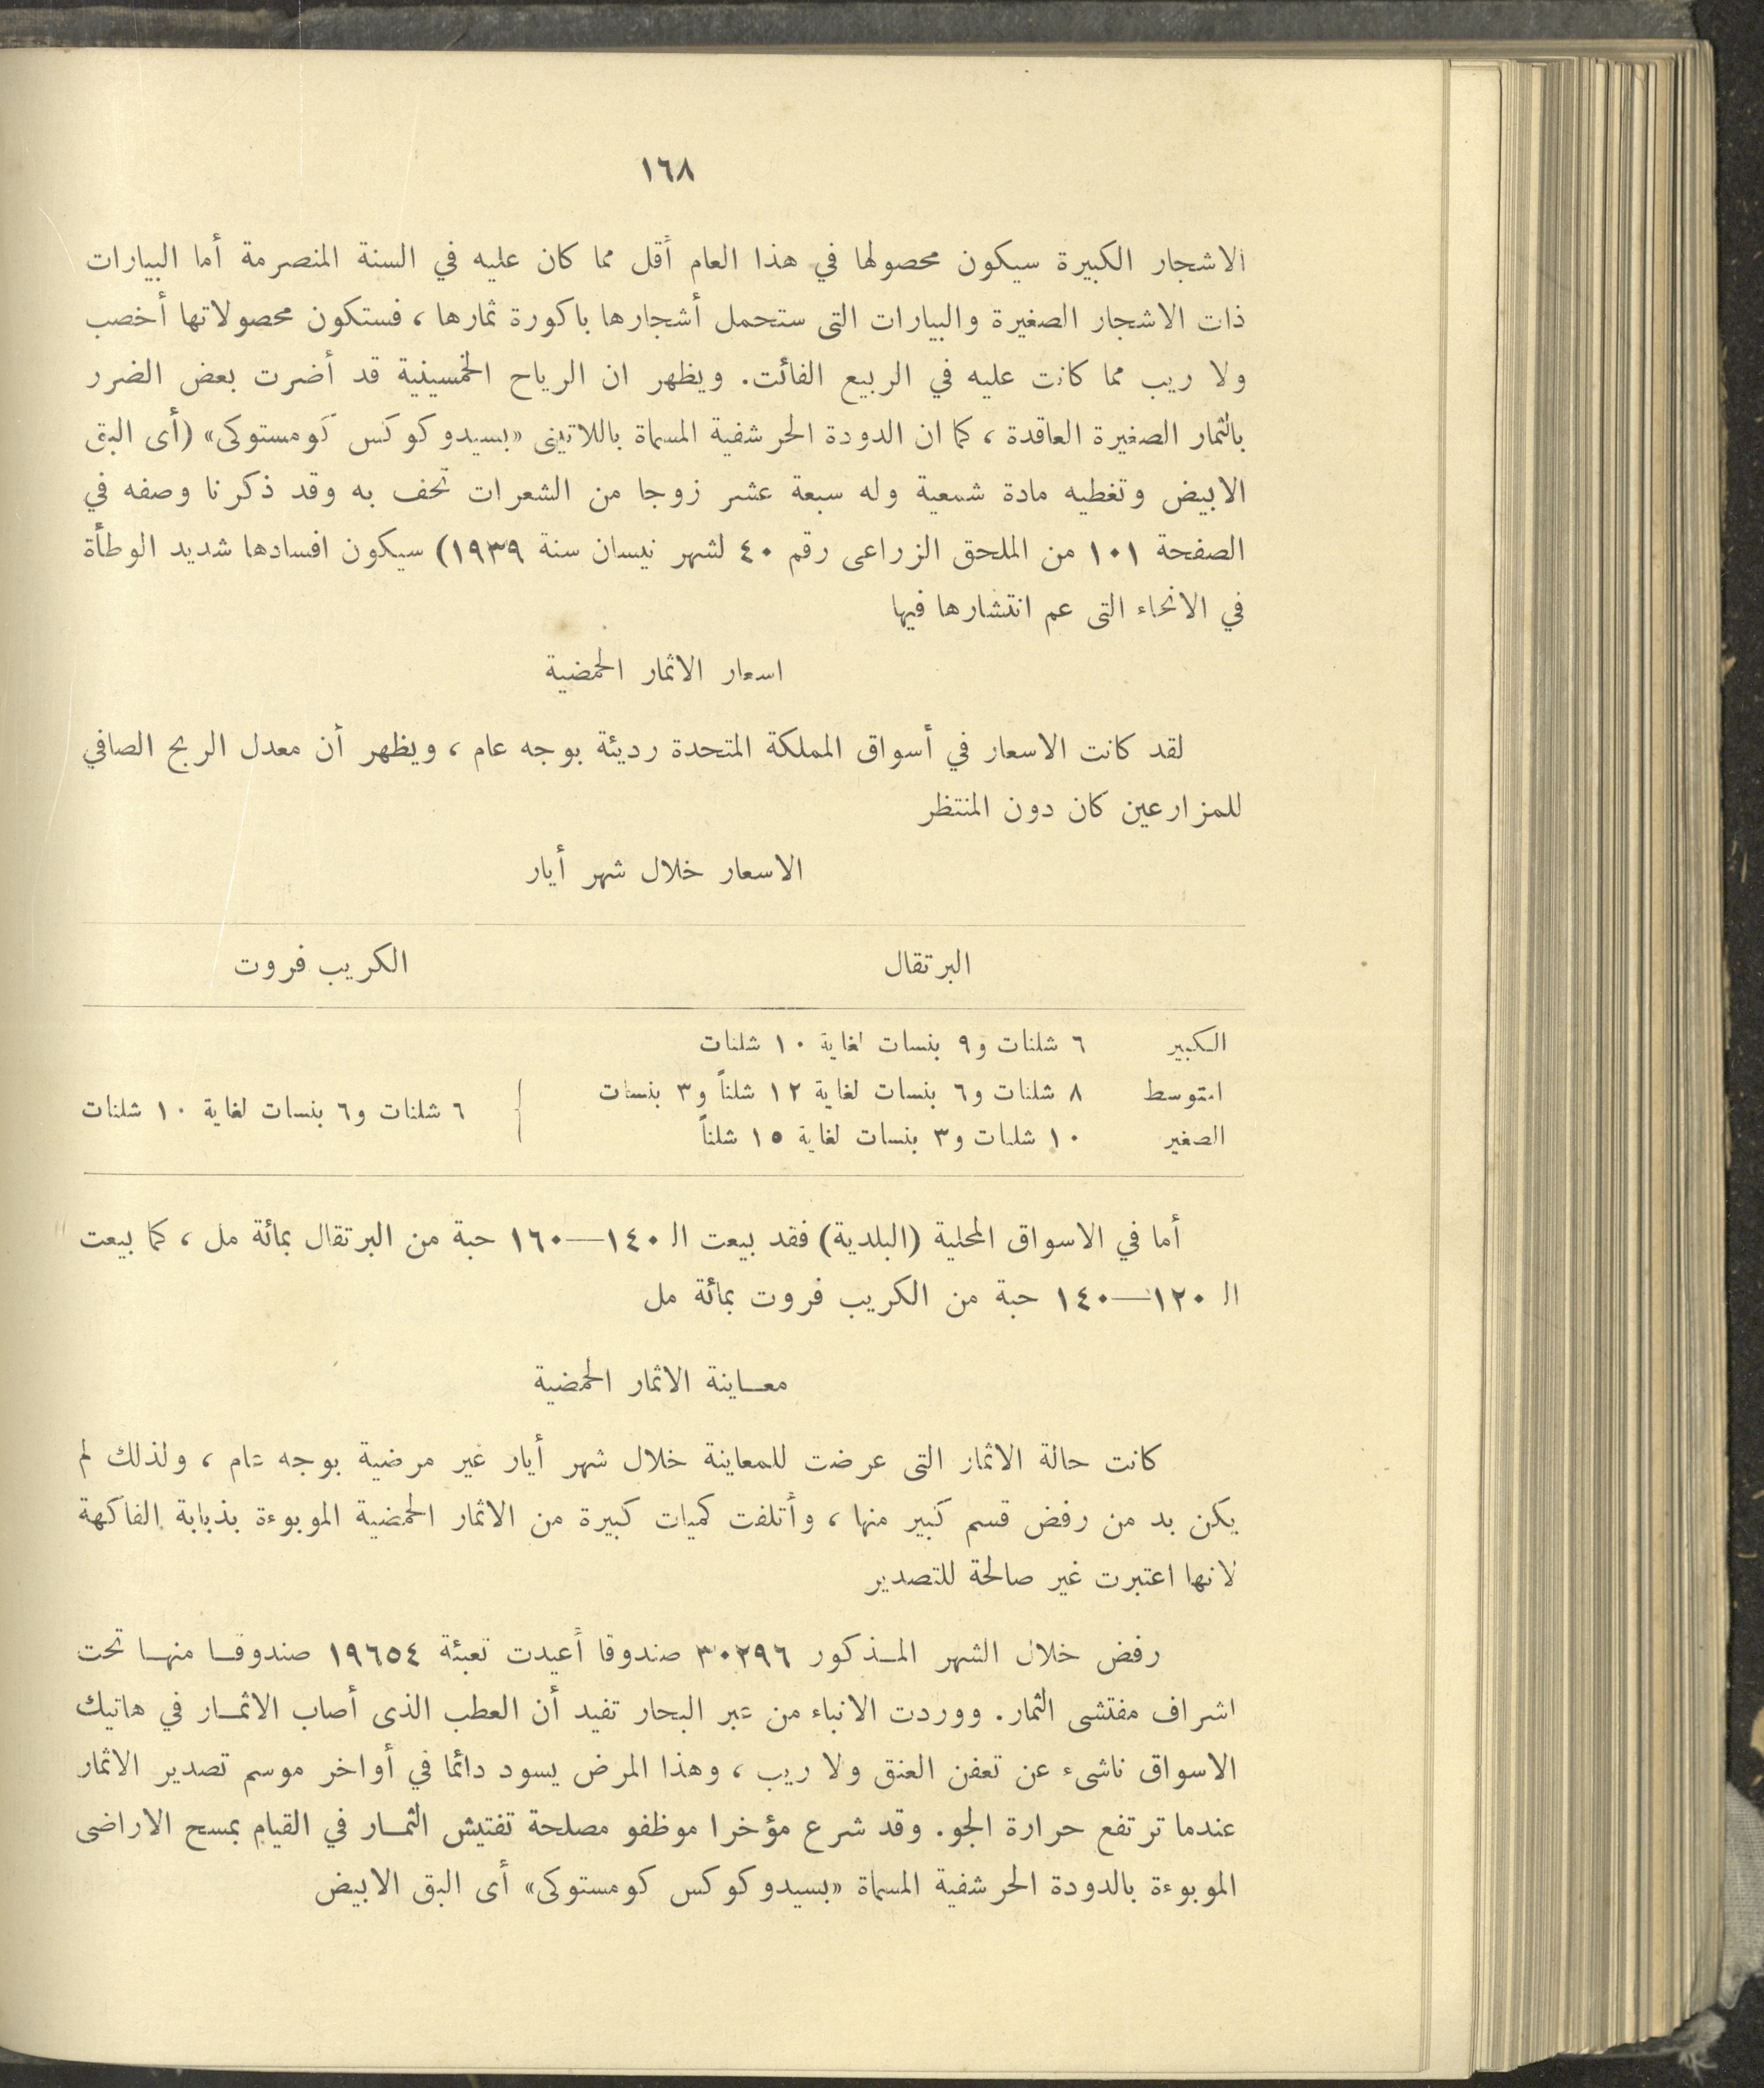 ١٦٨
الاشجار الكبيرة سيكون محصولها في هذا العام أقل مما كان عليه في السنة المنصرمة أما البيارات
ذات الاشجار الصغيرة والبيارات التى ستحمل أشجارها باكورة ثمارها ، فستكون محصولاتها أخصب
ولا ريب مما كانت عليه في الربيع الفائت. ويظهر ان الرياح الخمسينية قد أضرت بعض الضرر
بالثمار الصغيرة العاقدة ، كما ان الدودة الحرشفية المسماة باللاتينى «بسيدوكوكس كومستوكى» (أى البق
الابيض وتغطيه مادة شمعية وله سبعة عشر زوجا من الشعرات تحف به وقد ذكرنا وصفه في
الصفحة ١٠١ من الملحق الزراعى رقم ٤٠ لشهر نيسان سنة ١٩٣٩) سيكون افسادها شديد الوطأة
في الانحاء التى عم انتشارها فيها
اسعار الاثمار الحمضية
لقد كانت الاسعار في أسواق المملكة المتحدة رديئة بوجه عام ، ويظهر أن معدل الربح الصافي
للمزارعين كان دون المنتظر
الاسعار خلال شهر أيار
البرتقال الكريب فروت
الكبير ٦ شلنات و٩ بنسات لغاية ١٠ شلنات
المتوسط ٨ شلنات و٦ بنسات لغاية ١٢ شلناً و٣ بنسات } ٦ شلنات و٦ بنسات لغاية ١٠ شلنات
الصغير ١٠ شلنات و٣ بنسات لغاية ١٥ شلناً
أما في الاسواق المحلية (البلدية) فقد بيعت الـ ١٤٠—١٦٠ حبة من البرتقال بمائة مل ، كما بيعت
الـ ١٢٠—١٤٠ حبة من الكريب فروت بمائة مل
معـاينة الاثمار الحمضية
كانت حالة الاثمار التى عرضت للمعاينة خلال شهر أيار غير مرضية بوجه عام ، ولذلك لم
يكن بد من رفض قسم كبير منها ، وأتلفت كميات كبيرة من الاثمار الحمضية الموبوءة بذبابة الفاكهة
لانها اعتبرت غير صالحة للتصدير
رفض خلال الشهر المـذكور ٣٠٢٩٦ صندوقا أعيدت تعبئة ١٩٦٥٤ صندوقـا منهـا تحت
اشراف مفتشى الثمار. ووردت الانباء من عبر البحار تفيد أن العطب الذى أصاب الاثمـار في هاتيك
الاسواق ناشىء عن تعفن العنق ولا ريب ، وهذا المرض يسود دائما في أواخر موسم تصدير الاثمار
عندما ترتفع حرارة الجو. وقد شرع مؤخرا موظفو مصلحة تفتيش الثمـار في القيام بمسح الاراضى
الموبوءة بالدودة الحرشفية المسماة «بسيدوكوكس كومستوكى» أى البق الابيض